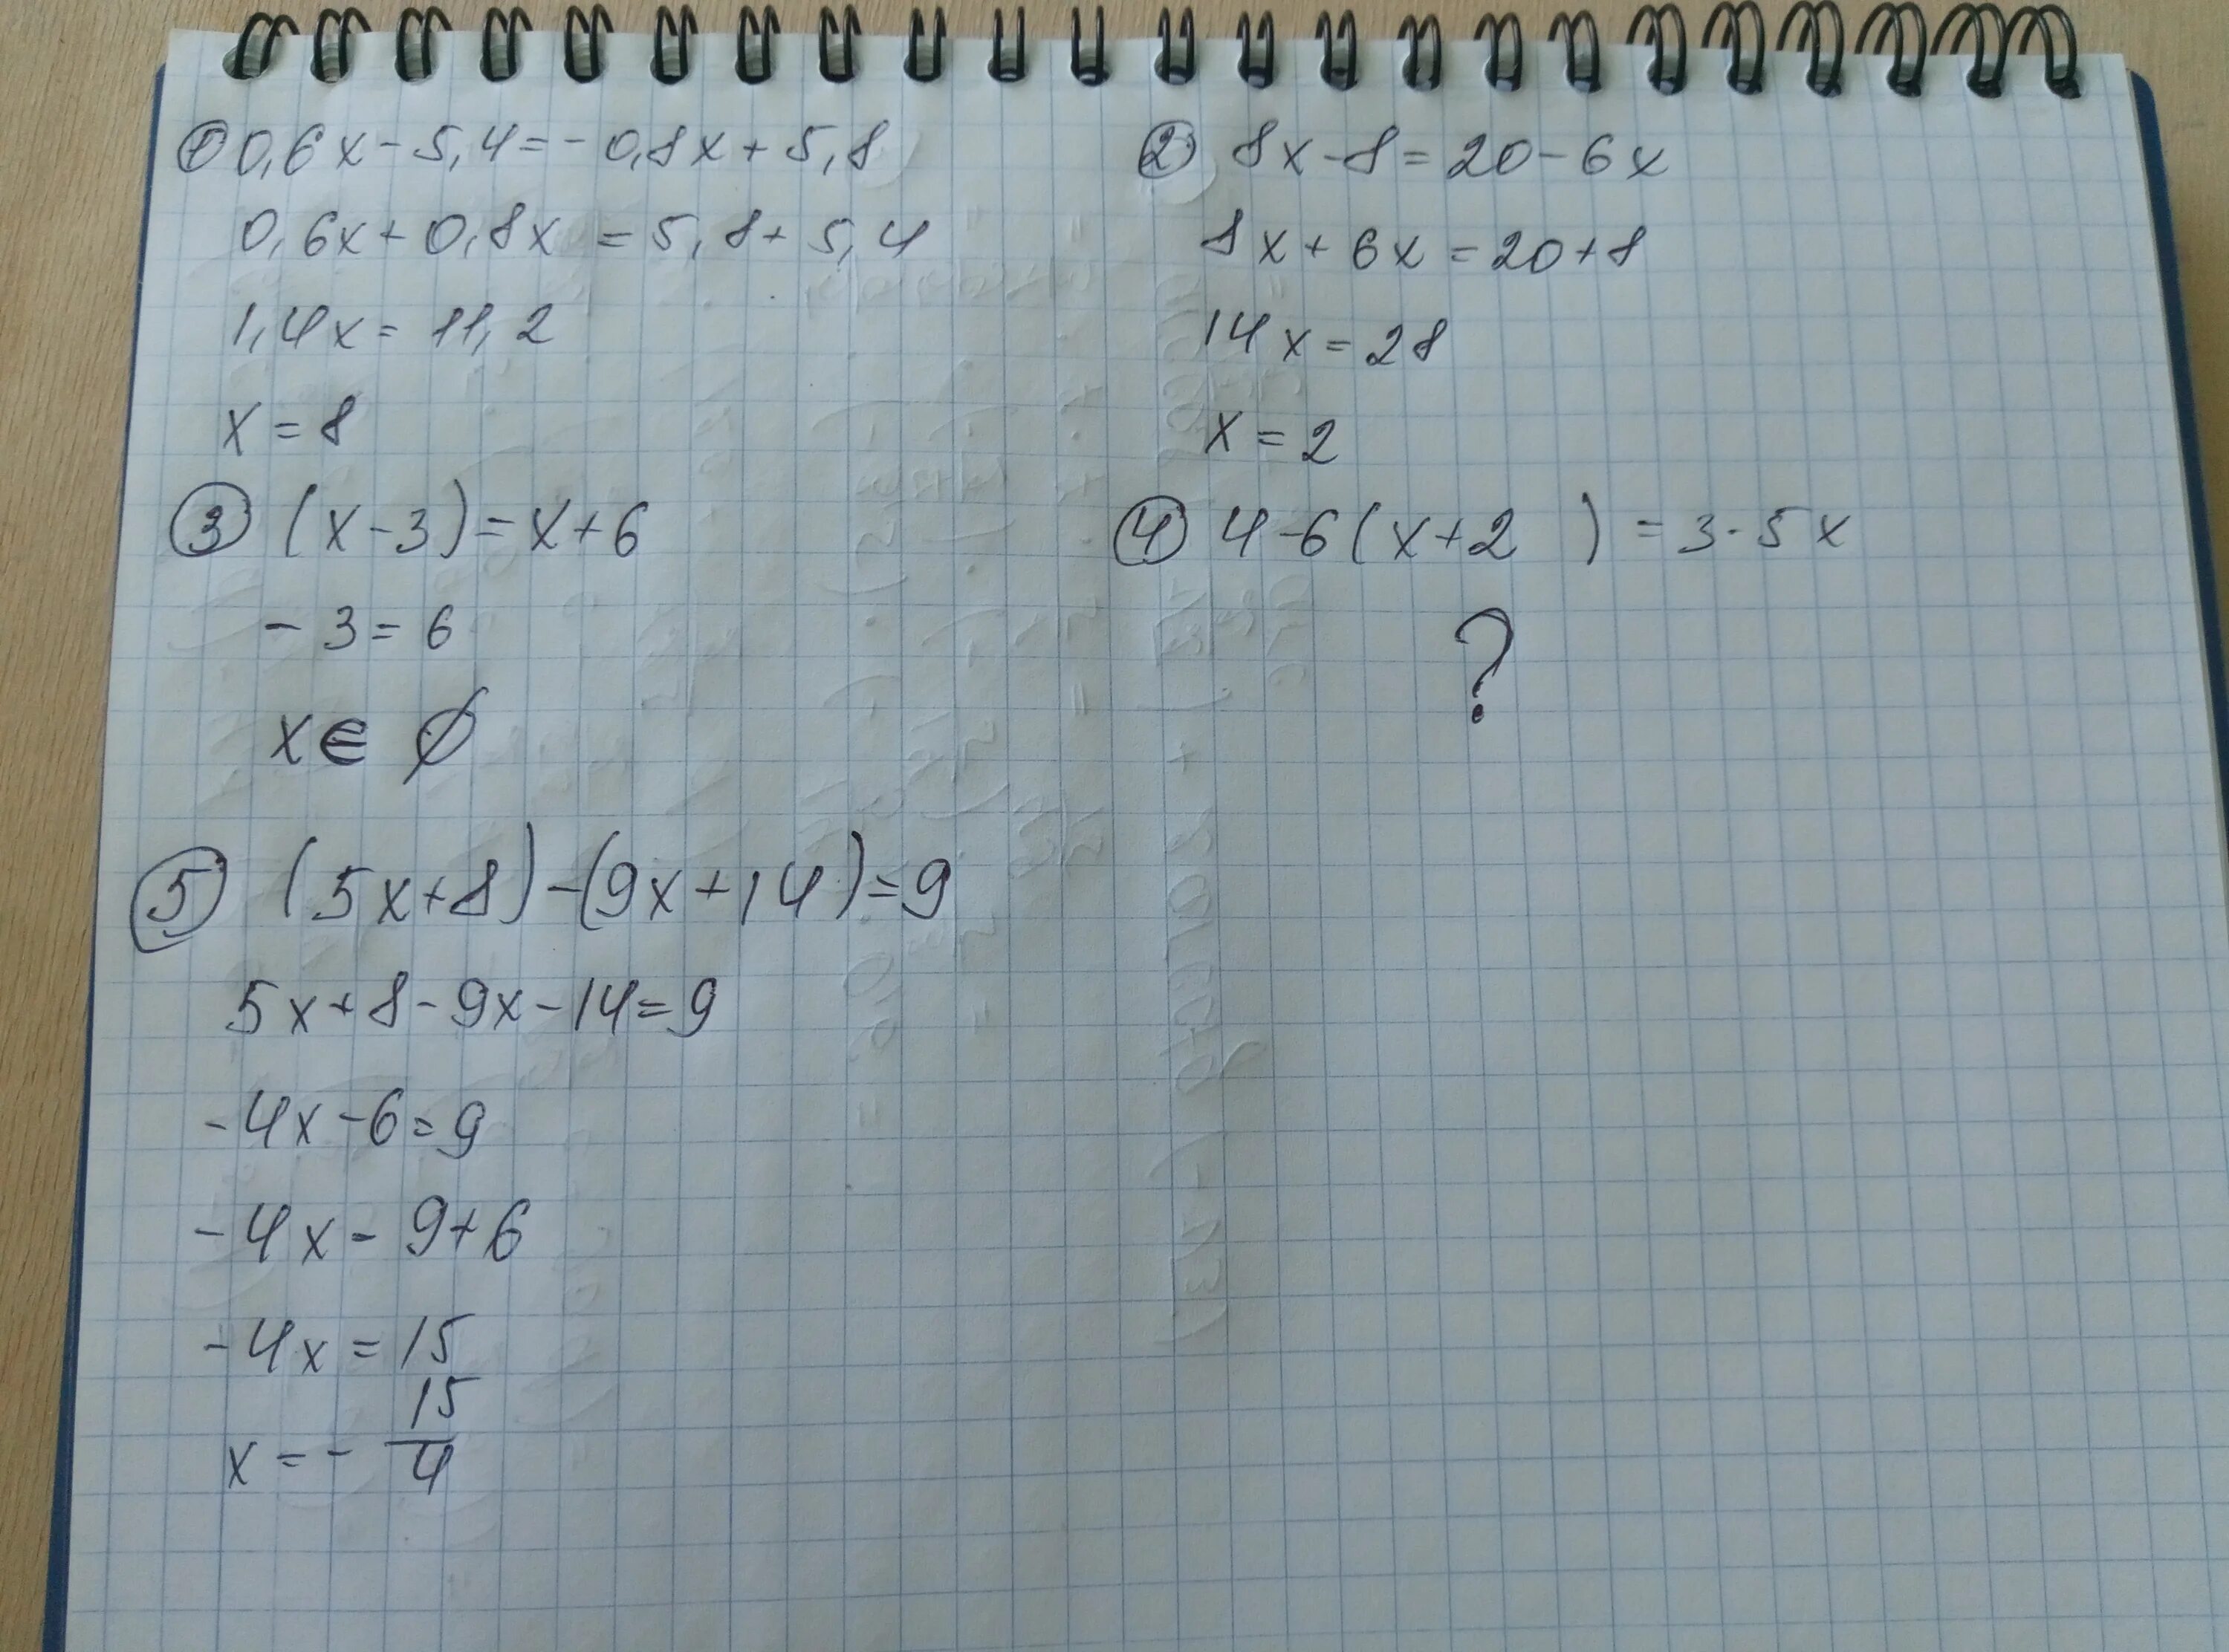 ① 0,6x-5,4=-0,8x+5,8
0,6x+0,8x=5,8+5,4
1,4x=11,2
x=8
② 8x-8=20-6x
8x+6x=20+8
14x=28
x=2
③ (x-3)=x+6
-3=6
x∈∅
④ 4-6(x+2)=3-5x
?
⑤ (5x+8)-(9x+14)=9
5x+8-9x-14=9
-4x-6=9
-4x-9+6
-4x=15
x=-15/4